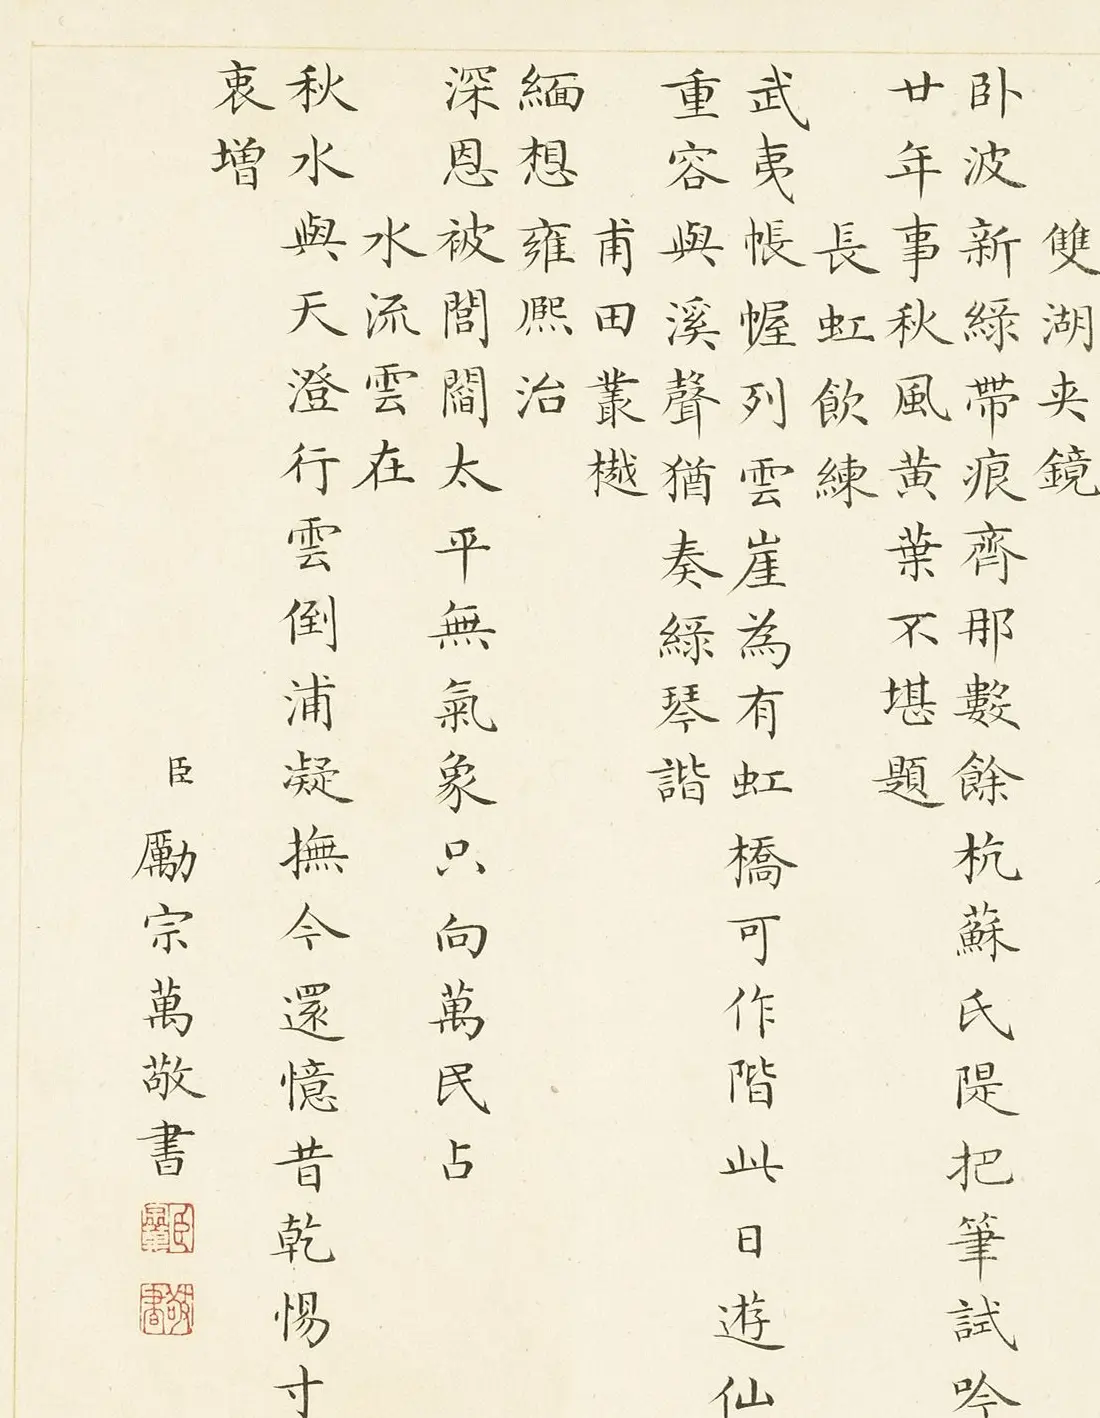 雙湖夾鏡
卧波新綠帶痕齊那數餘杭蘇氏隄把筆試吟
廿年事秋風黃葉不堪題
長虹飲練
武夷帳幄列雲崖為有虹橋可作階此日遊仙
重容與溪聲猶奏綠琴諧
甫田叢樾
緬想雍熈治
深恩被閭閻太平無氣象只向萬民占
水流雲在
秋水與天澄行雲倒浦凝撫今還憶昔乾惕寸
衷增
臣勵宗萬敬書
敬書